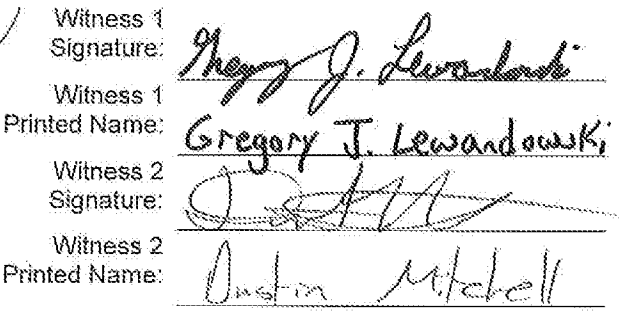 Witness 1
Signature: Gregory J. Lewandowski
Witness 1
Printed Name: Gregory J. Lewandowski
Witness 2
Signature:
Witness 2
Printed Name: Dustin Mitchell